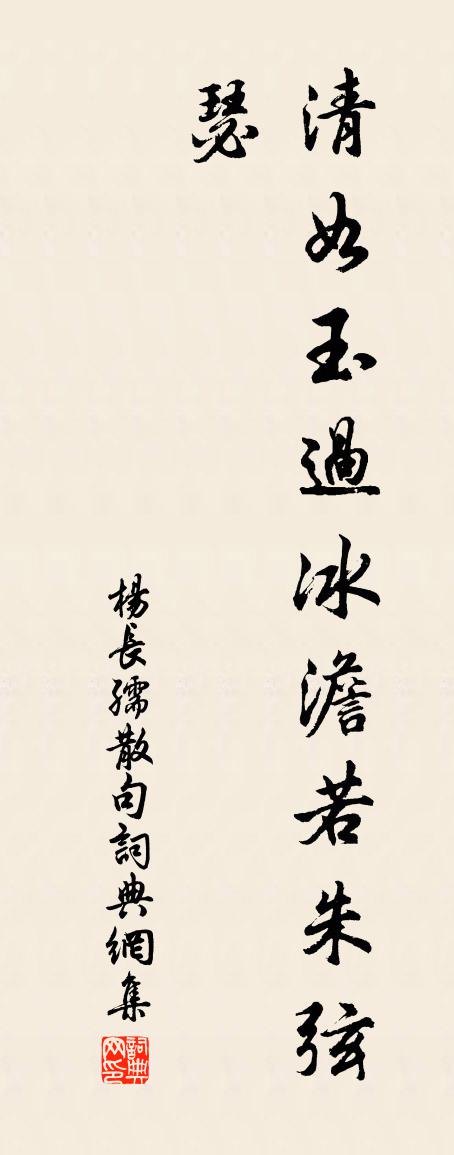 清如玉過冰澹若朱弦
瑟
楊長孺散句詞典網集
詞典网印